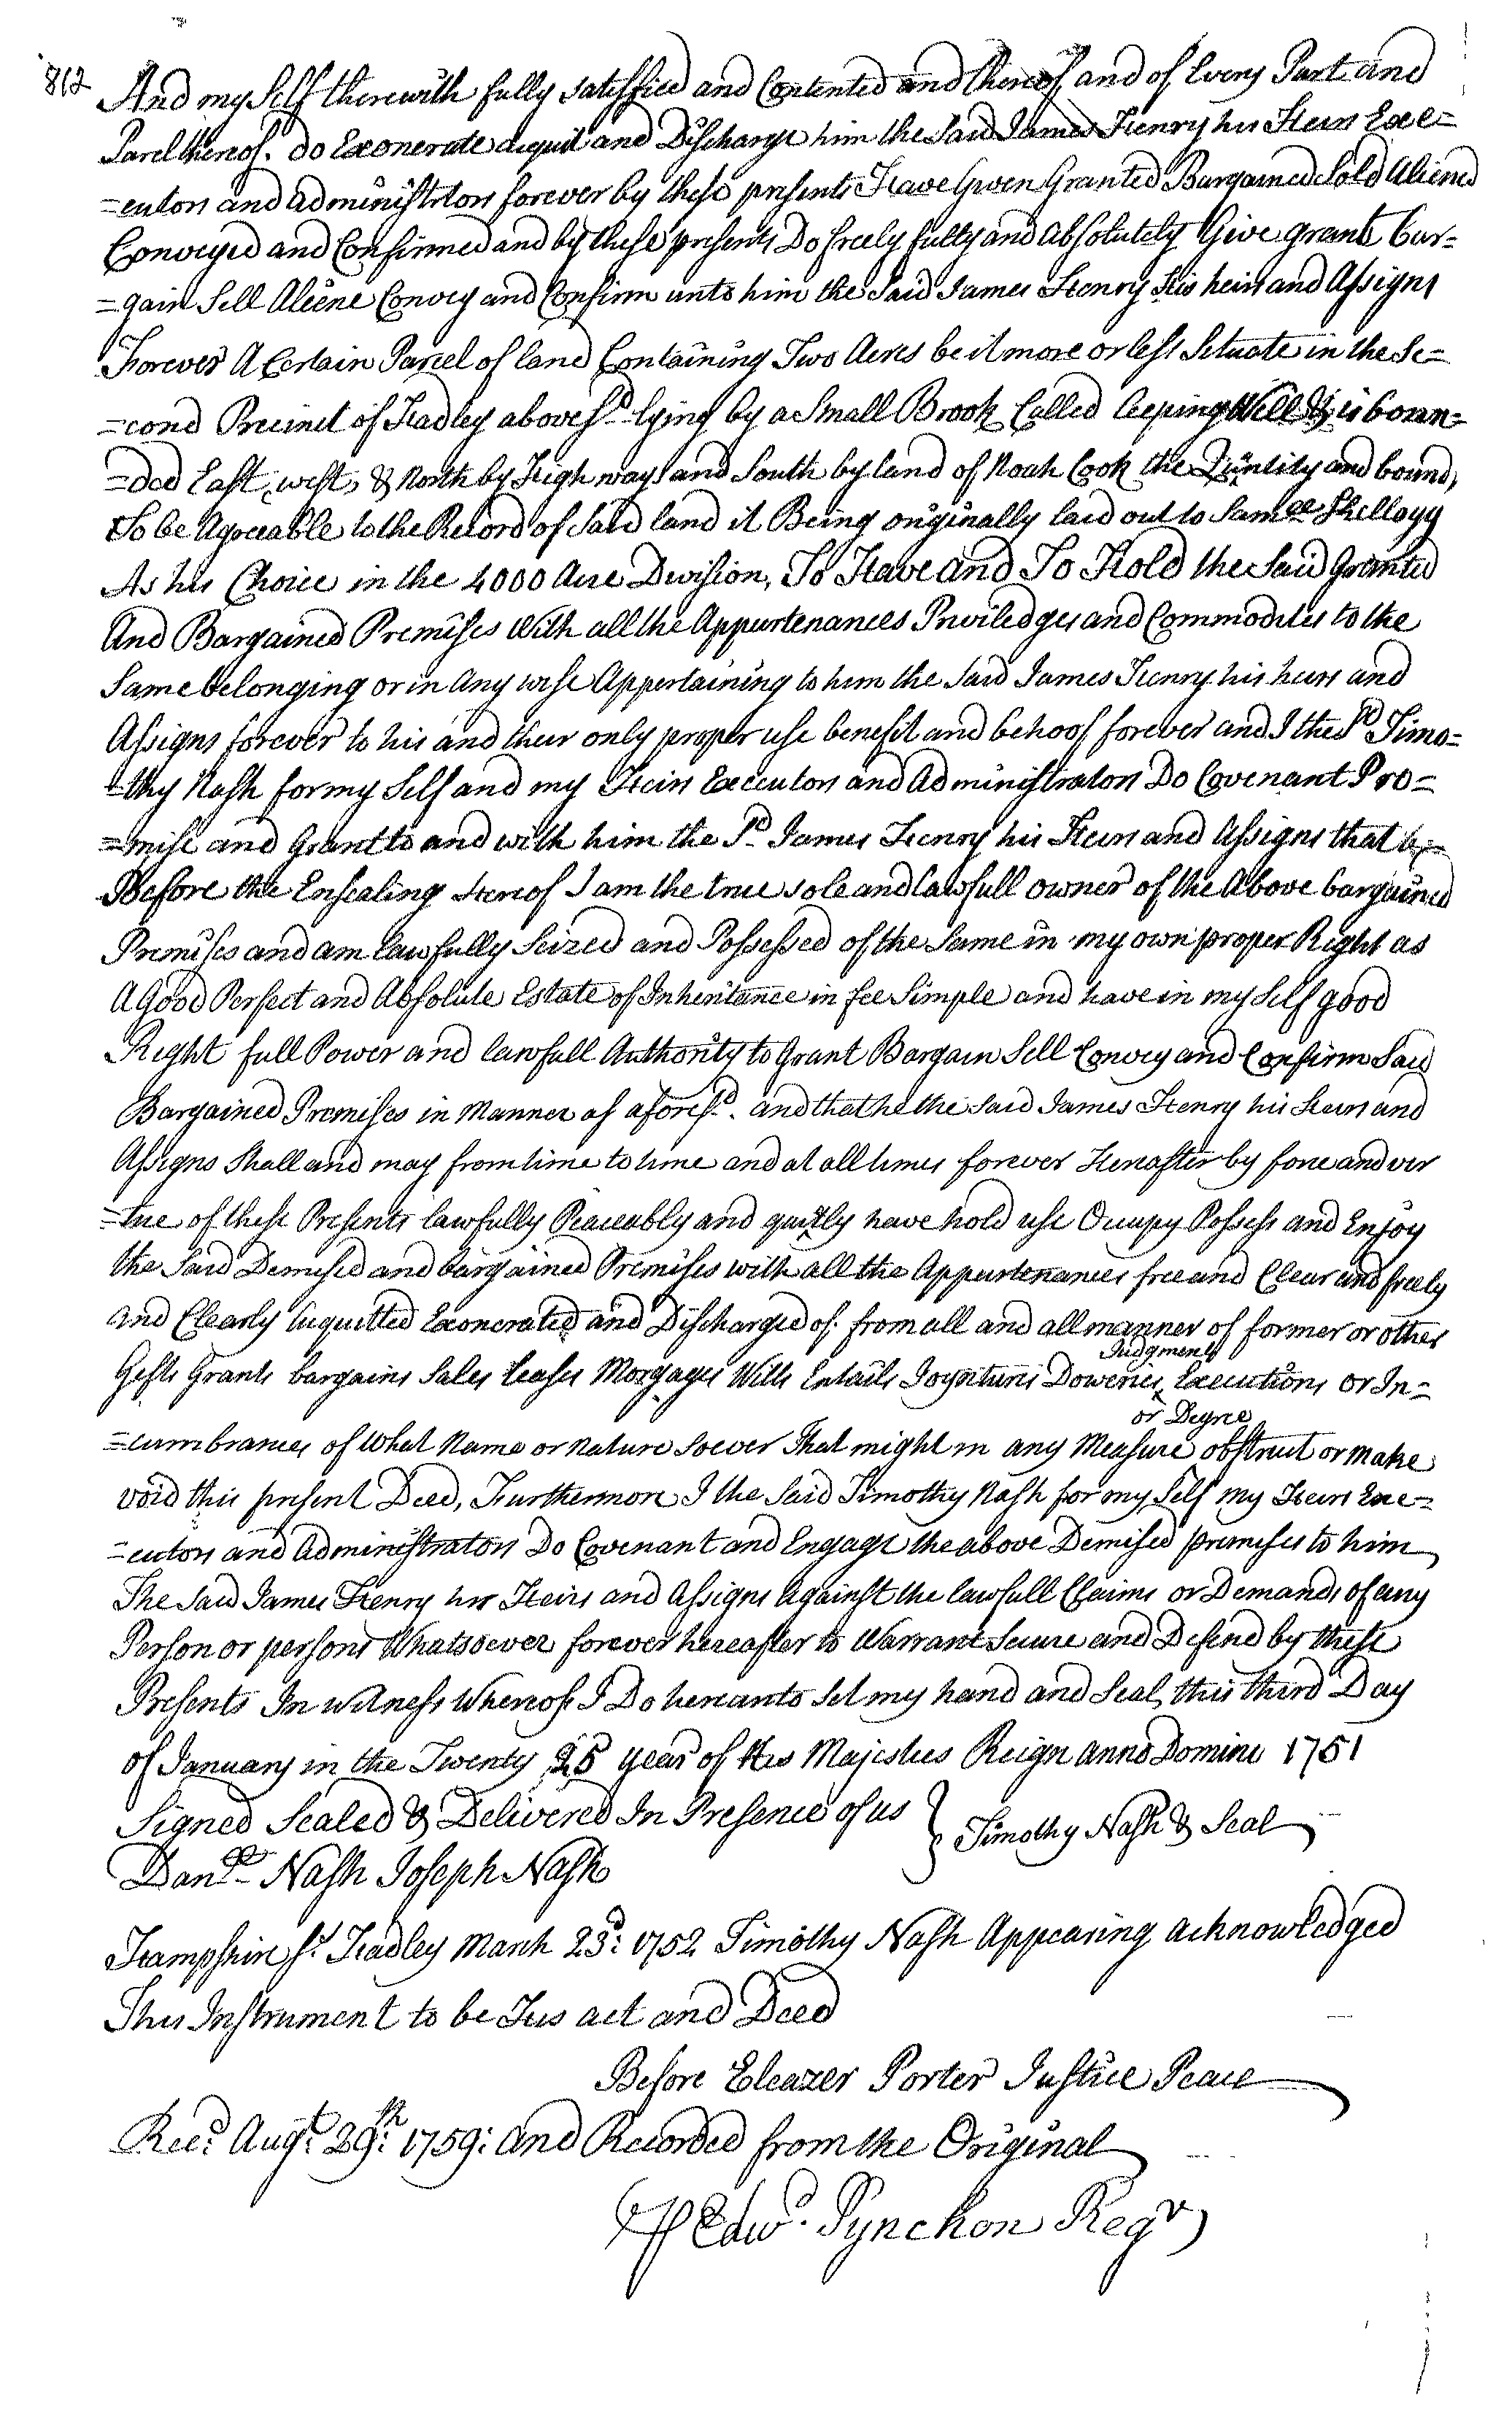 812
And my Self therewith fully Satisfied and Contented and thereof and of Every Part and
Parcel thereof. do Exonerate acquit and Discharge him the Said James Henry his Heirs Exe=
=cutors and administrators forever by these presents Have Given Granted Bargained Sold Aliened
Conveyed and Confirmed and by these presents Do freely fully and absolutely Give grant bar=
=gain Sell Aliene Convey and Confirm unto him the Said James Henry His heirs and Assigns
Forever A Certain Parcel of land Containing Two Acres be it more or less Situate in the Se=
=cond Precinct of Hadley aboves.d lying by a Small Brook Called Weeping Well & is boun=
=ded East, west, & North by High ways and South by land of Noah Cook the Quntity and bounds
to be Agreeable to the Record of Said land it Being originally laid out to Samll
As his Choice in the 4000 Acre Division, To Have and To Hold the Said Granted
And Bargained Premises With all the Appurtenances Priviledges and Commodities to the
Same belonging or in Any wise Appertaining to him the Said James Henry his heirs and
Assigns forever to his and their only proper use benefit and behoof forever and I the Sd Timo=
=thy Nash for my Self and my Heirs Executors and Administrators Do Covenant Pro=
=mise and Grant to and with him the Sd James Henry his Heirs and Assigns that
Before the Ensealing Hereof I am the true sole and lawfull owner of the Above bargained
Premises and am lawfully Seized and Possessed of the Same in my own proper Right as
A Good Perfect and Absolute Estate of Inheritance in fee Simple and have in my Self good
Right full Power and lawfull Authority to Grant Bargain Sell Convey and Confirm Said
Bargained Premises in Manner as afores.d. and that he the Said James Henry his Heirs and
Assigns Shall and may from time to time and at all times forever Hereafter by force and ver
=tue of these Presents lawfully Peaceably and quitly have hold use Occupy Possess and Enjoy
the Said Demised and bargained Premises with all the Appurtenances free and Clear and freely
and Clearly Acquitted Exonerated and Discharged of. from all and all manner of former or other
Judgments
Gifts Grants bargains Sales leases Morgages Wills Entails Joyntures Doweries Executions or In=
or Degree
=cumbrances of What Name or nature Soever That might in any Measure obstruct or make
void this present Deed, Furthermore I the Said Timothy Nash for my Self my Heirs Exe=
=cutors and Administrators Do Covenant and Engage the above Demised premises to him
The Said James Henry his Heirs and Assigns Against the lawfull Claims or Demands of any
Person or persons Whatsoever forever hereafter to Warrant Secure and Defend by these
Presents In witness Whereof I Do hereunto Set my hand and Seal, this third Day
of January in the Twenty 25 year of His Majesties Reign anno Domini 1751
Signed Sealed & Delivered In Presence of us } Timothy Nash & Seal
Danll Nash Joseph Nash
Hampshire ss. Hadley March 23d: 1752 Timothy Nash Appearing acknowledged
This Instrument to be His act and Deed
Before Eleazer Porter Justice Peace
Recd. Augt. 29th: 1759: and Recorded from the Original
Edwd. Pynchon Regr